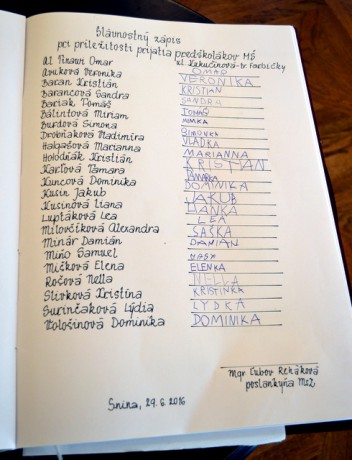 Slávnostný zápis
pri príležitosti prijatia predškolákov MŠ
ul. Kukučínova - Dr. Farbičky
Al Tinawi Omar OMAR
Antuková Veronika VERONIKA
Baran Kristián KRISTIAN
Barancová Sandra SANDRA
Bariak Tomáš TOMÁŠ
Bálintová Miriam MIMKA
Burdová Simona SIMONKA
Drobňaková Vladimíra VLADKA
Halgašová Marianna MARIANNA
Holodňák Kristián KRISTIAN
Karľová Tamara TAMARA
Kuncová Dominika DOMINIKA
Kusin Jakub JAKUB
Kusinová Liana LIANKA
Luptáková Lea LEA
Milovčíková Alexandra SAŠKA
Minár Damián DAMIAN
Miňo Samuel
Mičková Elena ELENKA
Rošová Nella NELLA
Slivková Kristína KRISTINKA
Surinčaková Lýdia LYDKA
Vološinová Dominika DOMINIKA
Mgr. Ľubov Reháková
poslankyňa MsZ
Snina, 29. 6. 2016